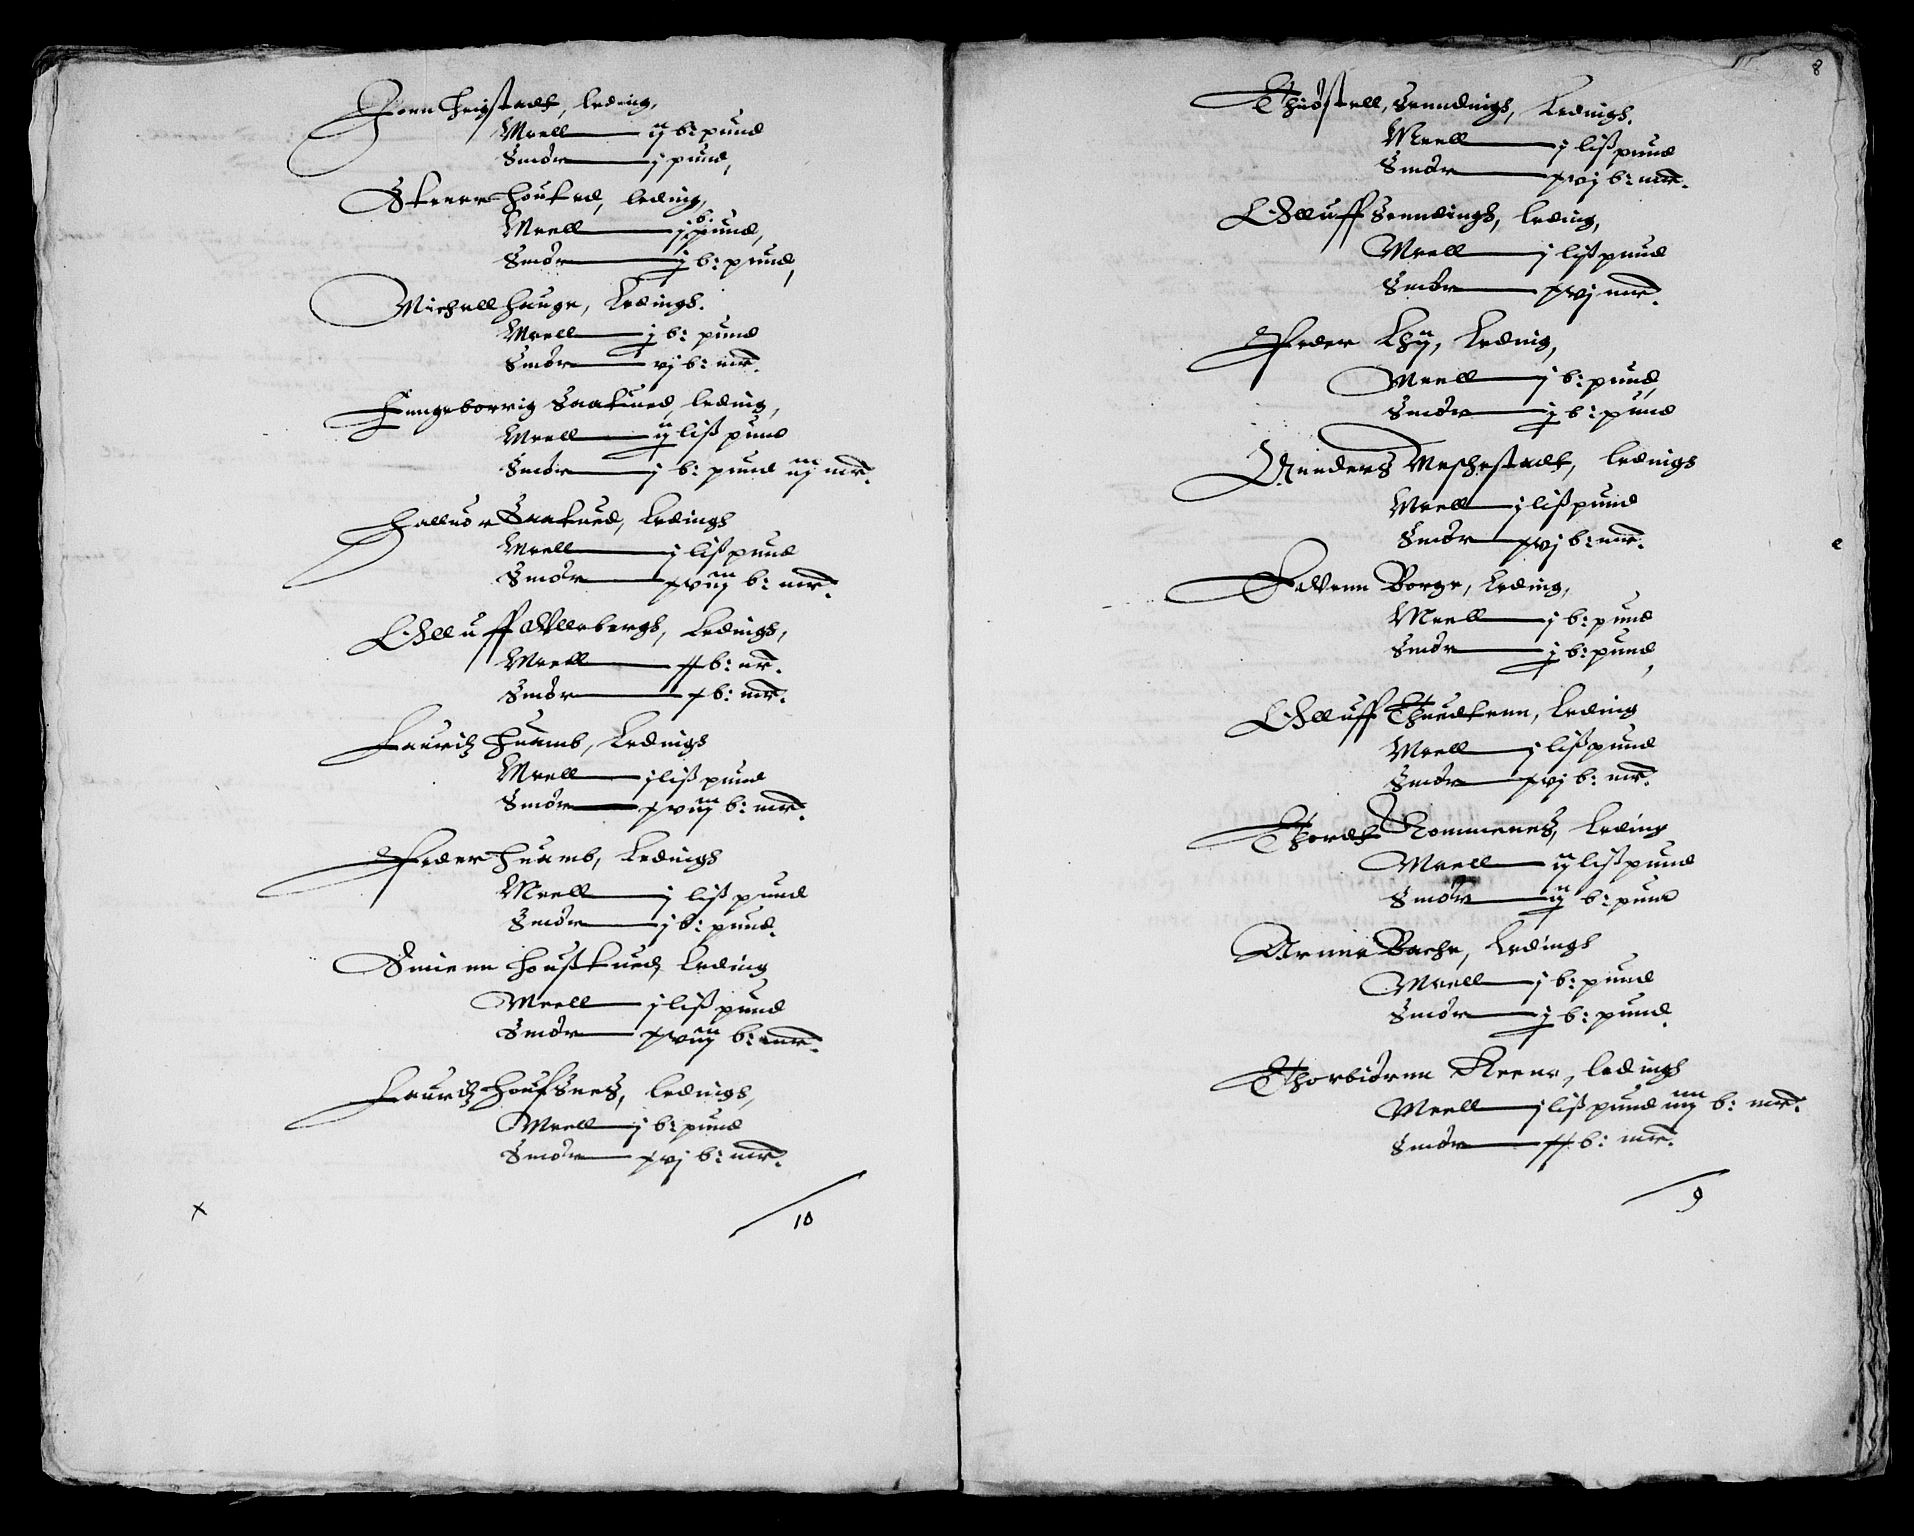 Joen Hugstadt, leding,
Meell — ij b: pund
Smör — j pund,
Steener Houked, leding,
Meell — j b: pund,
Smör — j b: pund,
Michell Hauge, Ledings.
Meell — j b: pund
Smör — vj b: mr.
Jnngeborrig Saakued, leding,
Meell — ij liß pund
Smör — j b: pund iij mr.
Halluor Saakued, Ledings
Meell — j liß pund
Smör — xviij b: mr.
Olluff Ullebergs, Ledings,
Meell — xx b: mr.
Smör — x b: mr.
Lauritz Huamb, Ledings
Meell — j liß pund
Smör — xviij b: mr.
Peder Huamb, Ledings
Meell — j liß pund
Smör — j b: pund.
Suienn Houßkued, Leding
Meell — j liß pund
Smör — xviij b: mr.
Lauritz Houfsnes, ledings,
Meell — j b: pund
Smör — xvj b: mr.
x
10
8
Thiöstell, Senndings, Ledings.
Meell — j liß pund
Smör — xvj b: mr.
Olluff Senndings, leding,
Meell — j liß pund
Smör — xvj mr.
Peder Lhij, Leding,
Meell — j b: pund,
Smör — j b: pund
Gunders Meschestadt, ledings
Meell — j liß pund
Smör — xvj b: mr.
Saltvenn Borge, Leding,
Meell — j b: pund
Smör — j b: pund,
Olluff Thuedtenn, Leding
Meell — j liß pund
Smör — xvj b: mr.
Thordt Rommenes, leding
Meell — ij liß pund
Smör — ij b: pund
Arnne Bache, Ledings
Meell — j b: pund
Smör — j b: pund.
Thorbiörnn Reene, ledings
Meell — j liß pund iiij b: mr.
Smör — xx b: mr.
9